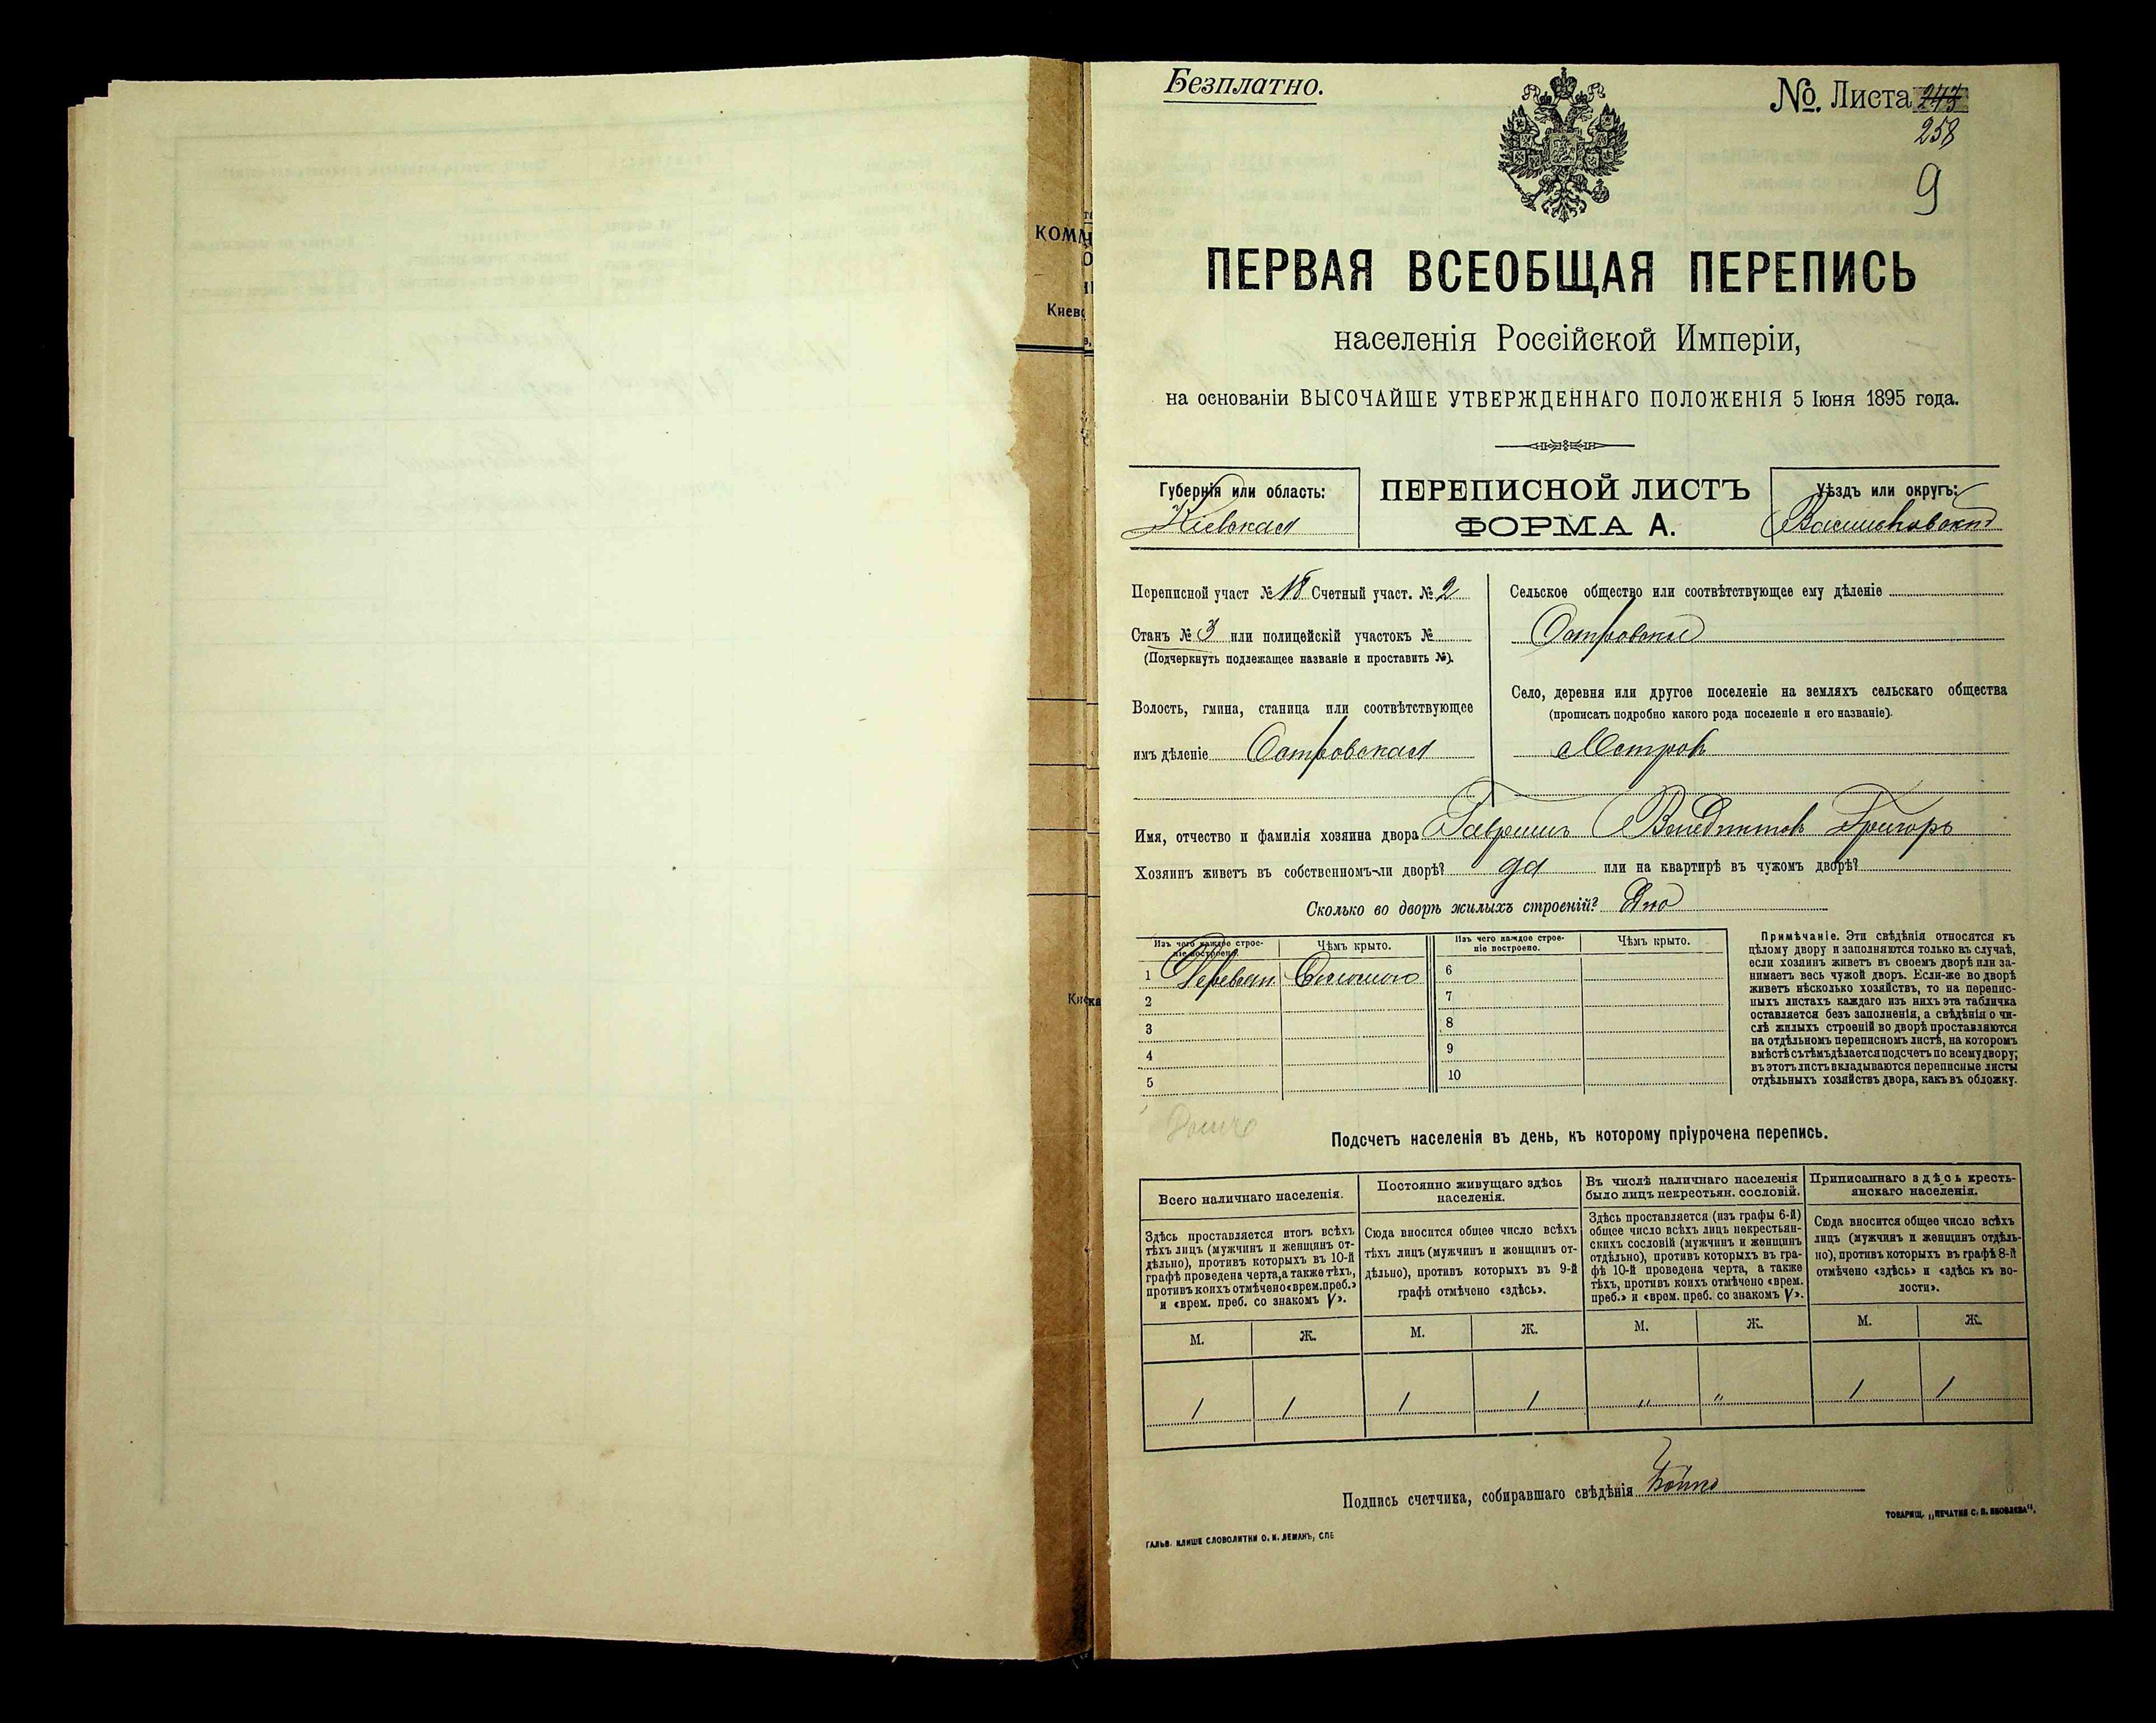 Безплатно.
№. Листа 243
258
9
КОММ
Киев
ПЕРВАЯ ВСЕОБЩАЯ ПЕРЕПИСЬ
населенія Россійской Имперіи,
на основаніи ВЫСОЧАЙШЕ УТВЕРЖДЕННАГО ПОЛОЖЕНІЯ 5 Іюня 1895 года.
Губернія или область:
Кіевская
ПЕРЕПИСНОЙ ЛИСТЪ
ФОРМА А.
Уѣздъ или округъ:
Васильковскій
Переписной участ № 18 Счетный участ. № 2
Станъ № 3 или полицейскій участокъ №
(Подчеркнуть подлежащее названіе и проставить №).
Волость, гмина, станица или соотвѣтствующее
имъ дѣленіе Островская
Сельское общество или соотвѣтствующее ему дѣленіе
Островское
Село, деревня или другое поселеніе на земляхъ сельскаго общества
(прописать подробно какого рода поселеніе и его названіе).
Островъ
Имя, отчество и фамилія хозяина двора Григоръ
Хозяинъ живетъ въ собственномъ-ли дворѣ? да или на квартирѣ въ чужомъ дворѣ?
Сколько во дворѣ жилыхъ строеній? Одно
Изъ чего каждое строе-
ніе построено.
Чѣмъ крыто.
Изъ чего каждое строе-
ніе построено.
Чѣмъ крыто.
1 Деревян. Соломою
2
3
4
5
6
7
8
9
10
Примѣчаніе. Эти свѣдѣнія относятся къ
цѣлому двору и заполняются только въ случаѣ,
если хозяинъ живетъ въ своемъ дворѣ или за-
нимаетъ весь чужой дворъ. Если-же во дворѣ
живетъ нѣсколько хозяйствъ, то на перепис-
ныхъ листахъ каждаго изъ нихъ эта табличка
оставляется безъ заполненія, а свѣдѣнія о чи-
слѣ жилыхъ строеній во дворѣ проставляются
на отдѣльномъ переписномъ листѣ, на которомъ
вмѣстѣ съ тѣмъ дѣлается подсчетъ по всему двору;
въ этотъ листъ вкладываются переписные листы
отдѣльныхъ хозяйствъ двора, какъ въ обложку.
Подсчетъ населенія въ день, къ которому пріурочена перепись.
Всего наличнаго населенія.
Постоянно живущаго здѣсь
населенія.
Въ числѣ наличнаго населенія
было лицъ некрестьян. сословій.
Приписаннаго здѣсь кресть-
янскаго населенія.
Здѣсь проставляется итогъ всѣхъ
тѣхъ лицъ (мужчинъ и женщинъ от-
дѣльно), противъ которыхъ въ 10-й
графѣ проведена черта, а также тѣхъ,
противъ коихъ отмѣчено «врем. преб.»
и «врем. преб. со знакомъ V».
Сюда вносится общее число всѣхъ
тѣхъ лицъ (мужчинъ и женщинъ от-
дѣльно), противъ которыхъ въ 9-й
графѣ отмѣчено «здѣсь».
Здѣсь проставляется (изъ графы 6-й)
общее число всѣхъ лицъ некрестьян-
скихъ сословій (мужчинъ и женщинъ
отдѣльно), противъ которыхъ въ гра-
фѣ 10-й проведена черта, а также
тѣхъ, противъ коихъ отмѣчено «врем.
преб.» и «врем. преб. со знакомъ V».
Сюда вносится общее число всѣхъ
лицъ (мужчинъ и женщинъ отдѣль-
но), противъ которыхъ въ графѣ 8-й
отмѣчено «здѣсь» и «здѣсь къ во-
лости».
М. Ж. М. Ж. М. Ж. М. Ж.
1 1 1 1 " " 1 1
Подпись счетчика, собиравшаго свѣдѣнія Бойко
ТОВАРИЩ. „ПЕЧАТНЯ С. П. ЯКОВЛЕВА“.
ГАЛЬВ. КЛИШЕ СЛОВОЛИТНИ О. И. ЛЕМАНЪ, СПБ